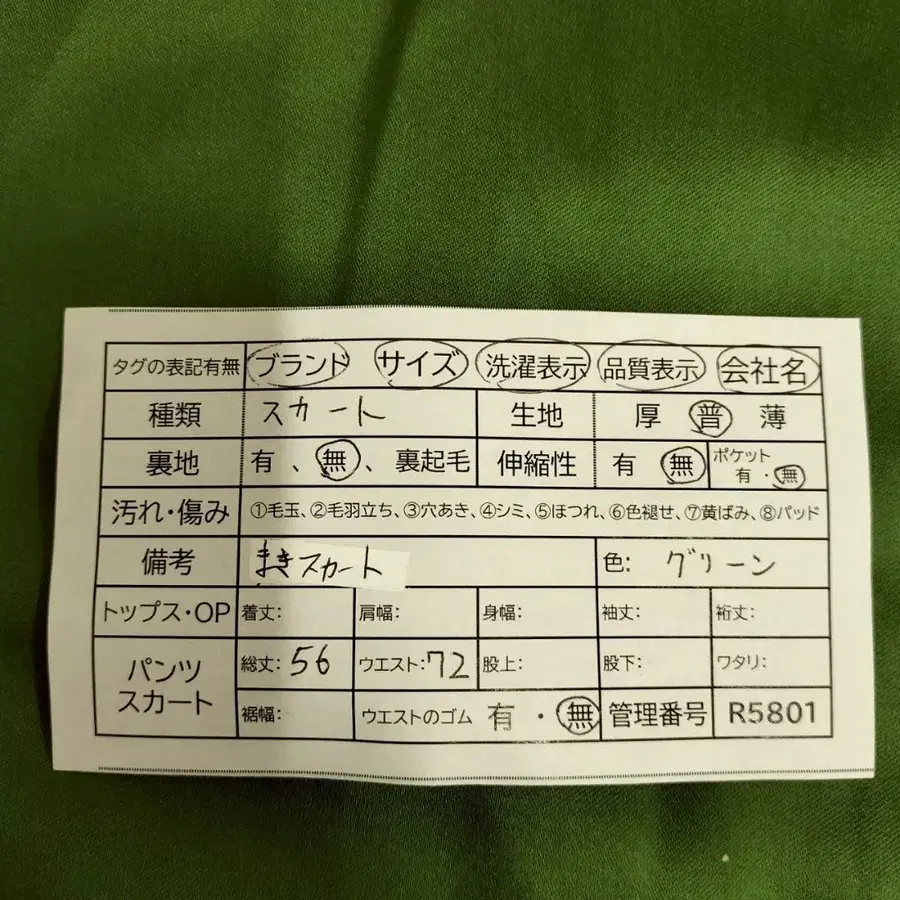 タグの表記有無 ブランド サイズ 洗濯表示 品質表示 会社名
種類 スカート 生地 厚 普 薄
裏地 有、無、裏起毛 伸縮性 有 無 ポケット 有・無
汚れ・傷み ①毛玉、②毛羽立ち、③穴あき、④シミ、⑤ほつれ、⑥色褪せ、⑦黄ばみ、⑧パッド
備考 まきスカート 色: グリーン
トップス・OP 着丈: 肩幅: 身幅: 袖丈: 裄丈:
パンツ スカート 総丈: 56 ウエスト: 72 股上: 股下: ワタリ:
裾幅: ウエストのゴム 有・無 管理番号 R5801